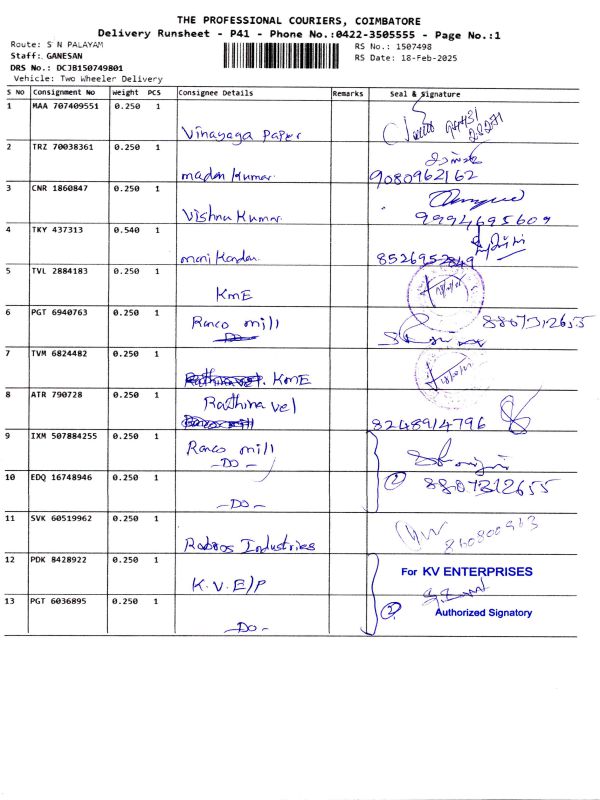 THE PROFESSIONAL COURIERS, COIMBATORE
Delivery Runsheet - P41 - Phone No.:0422-3505555 - Page No.:1
Route: S N PALAYAM RS No.: 1507498
Staff: GANESAN RS Date: 18-Feb-2025
DRS No.: DCJB150749801
Vehicle: Two Wheeler Delivery
S NO Consignment No Weight PCS Consignee Details Remarks Seal & Signature
1 MAA 707409551 0.250 1
Vinayaga Paper
2 TRZ 70038361 0.250 1
madan kumar 9080962162
3 CNR 1860847 0.250 1
Vishnu Kumar 9994695609
4 TKY 437313 0.540 1
mani kandan
5 TVL 2884183 0.250 1
KmE
6 PGT 6940763 0.250 1
Ranco mill 8807312655
7 TVM 6824482 0.250 1
KmE
8 ATR 790728 0.250 1
Raithina vel 8248914796
9 IXM 507884255 0.250 1
Ranco mill
-DO-
10 EDQ 16748946 0.250 1
② 8807312655
-DO-
11 SVK 60519962 0.250 1
Robros Industries
12 PDK 8428922 0.250 1
For KV ENTERPRISES
K.V.E/P
13 PGT 6036895 0.250 1
② Authorized Signatory
-DO-